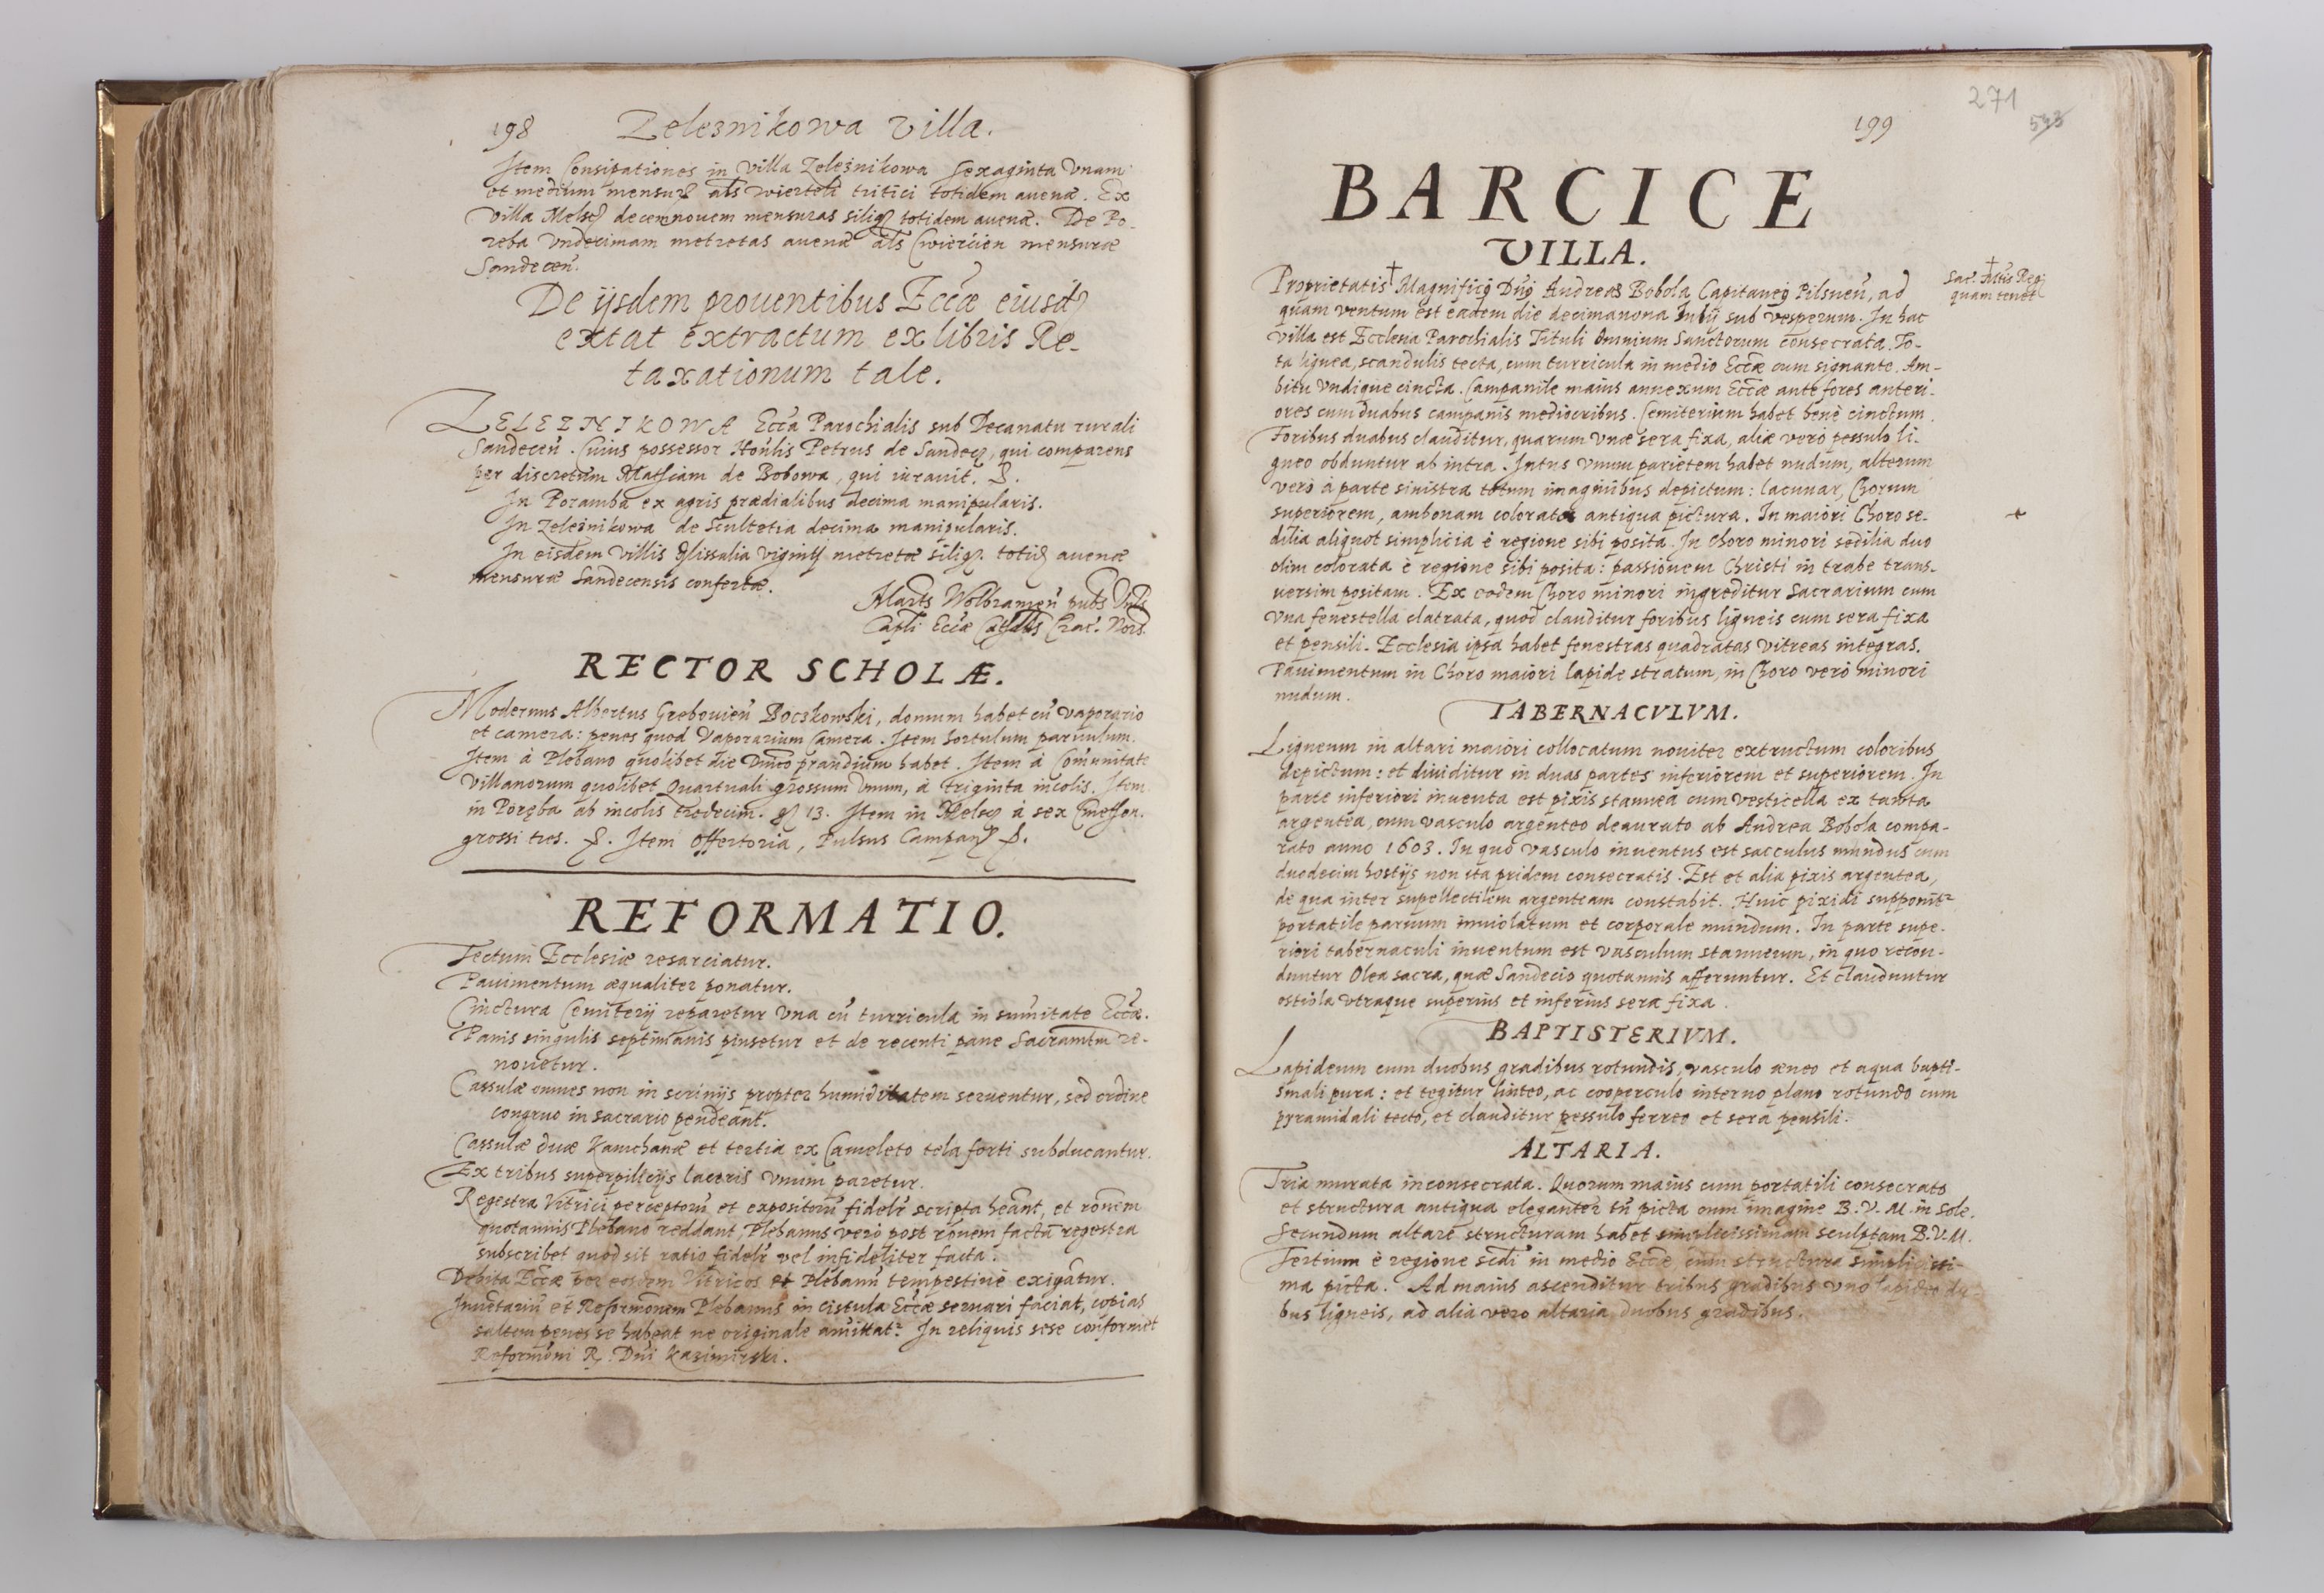 198 Zelesnikowa Villa.
Item Consipationes in Villa Zeleśnikowa Sexaginta Vnam
et medium mensur als wierteli tritici totidem auenæ. Ex
Villa decemnouem mensuras silig totidem auenæ. De Po-
reba Vndecimam metretas auenæ als Cwiercien mensuræ
Sandecen̄.
De ijsdem prouentibus Eccæ eiusd
extat extractum ex libris Re-
taxationum tale.
ZELEZNIKOWA Ecca Parochialis sub Decanatu rurali
Sandecen̄. Cuius possessor Honlis Petrus de Sandecz, qui comparens
per discretum Mathiam de Bobowa, qui iurauit.
In Poramba ex agris prædialibus decima manipularis.
In Zeleśnikowa de Scultetia decima manipularis.
In eisdem Villis Missalia viginti metretæ silig. totid auenæ
mensuræ Sandecensis confertæ.
Marts Wolbramen̄ pubs
Capli Eccæ Crac. Nors.
RECTOR SCHOLÆ.
Modernus Albertus Grebouien̄ Bocskowski, domum habet cū vaporario
et camera: penes quod Vaporarium Camera. Item hortulum paruulum.
Item à Plebano quolibet die Dn̄ico prandium habet. Item à Com̄unitate
Villanorum quolibet Quartuali grossum Vnum, à triginta incolis. Item
in Poręba ab incolis tredecim. 13. Item in à sex
grossi tres. Item Offertoria, Pulsus Campan
REFORMATIO.
Tectum Ecclesiæ resarciatur.
Pauimentum æqualiter ponatur.
Cinctura Cemiterij reparetur Vna cū turricula in sum̄itate Eccæ.
Panis singulis septimanis pinsetur et de recenti pane Sacramtm re-
nouetur.
Cassulæ omnes non in scrinijs propter humiditatem seruentur, sed ordine
congruo in sacrario pendeant.
Cassulæ duæ Kamchanæ et tertia ex Cameleto tela forti subducantur.
Ex tribus superpillicijs laceris Vnum paretur.
Regestra Vitrici perceptorū et expositorū fidelr scripta heant, et ronem
quotannis Plebano reddant, Plebanus vero post ronem factā regestra
subscribet quod sit ratio fidelr vel infideliter facta.
Debita Eccæ per eosdem Vitricos et Plebanū tempestiuè exigatur.
Inuetariū et Reformōnem Plebanus in cistula Eccæ seruari faciat, copias
saltem penes se habeat ne originale amittatr. In reliquis sese conformet
Reformōni R. Dn̄i Kazimirski.
271
199
BARCICE
VILLA.
Proprietatis † Magnifici Dni Andreas Bobola Capitanei Pilsnen̄, ad
† Sac. Mtis Regi
quam tenet
quam ventum est eadem die decimanona Iulij sub vesperum. In hac
Villa est Ecclesia Parochialis Tituli Omnium Sanctorum consecrata. To-
ta lignea, scandulis tecta, cum turricula in medio Eccæ cum signante. Am-
bitu Vndique cincta. Campanile maius annexum Eccæ ante fores anteri-
ores cum duabus campanis mediocribus. Cemiterium habet benè cinctum.
Foribus duabus clauditur, quarum vnæ sera fixa, aliæ verò pessulo li-
gneo obduntur ab intra. Intus vnum parietem habet nudum, alterum
verò à parte sinistra totum imaginibus depictum: lacunar, Chorum
superiorem, ambonam colorata antiqua pictura. In maiori Choro se-
dilia aliquot simplicia è regione sibi posita. In Choro minori sedilia duo
olim colorata è regione sibi posita: passionem Christi in trabe trans-
uersim positam. Ex eodem Choro minori ingreditur Sacrarium cum
Vna fenestella clatrata, quod clauditur foribus ligneis cum sera fixa
et pensili. Ecclesia ipsa habet fenestras quadratas vitreas integras.
Pauimentum in Choro maiori lapide stratum, in Choro verò minori
nudum.
TABERNACVLVM.
Ligneum in altari maiori collocatum nouiter extructum coloribus
depictum: et diuiditur in duas partes inferiorem et superiorem. In
parte inferiori inuenta est pixis stannea cum vesticella ex tamta
argentea, cum vasculo argenteo deaurato ab Andrea Bobola compa-
rato anno 1603. In quo vasculo inuentus est sacculus mundus cum
duodecim hostijs non ita pridem consecratis. Est et alia pixis argentea,
de qua inter supellectilem argenteam constabit. Huic pixidi supponitr
portatile paruum inuiolatum et corporale mundum. In parte supe-
riori tabernaculi inuentum est vasculum stanneum, in quo recon-
duntur Olea sacra, quæ Sandecio quotannis afferuntur. Et clauduntur
ostiola vtraque superius et inferius sera fixa.
BAPTISTERIVM.
Lapideum cum duobus gradibus rotundis, vasculo æneo et aqua bapti-
smali pura: et tegitur linteo, ac cooperculo interno plano rotundo cum
pyramidali tecto, et clauditur pessulo ferreo et sera pensili.
ALTARIA.
Tria murata inconsecrata. Quorum maius cum portatili consecrato
et structura antiqua eleganter tn̄ picta cum imagine B.V.M. in Sole.
Secundum altare structuram habet simplicissimam sculptam B.V.M.
Tertium è regione sedi in medio Eccæ cum structura simplicissi-
ma picta. Ad maius ascenditur tribus gradibus vno lapideo du-
bus ligneis, ad alia vero altaria duobus gradibus.